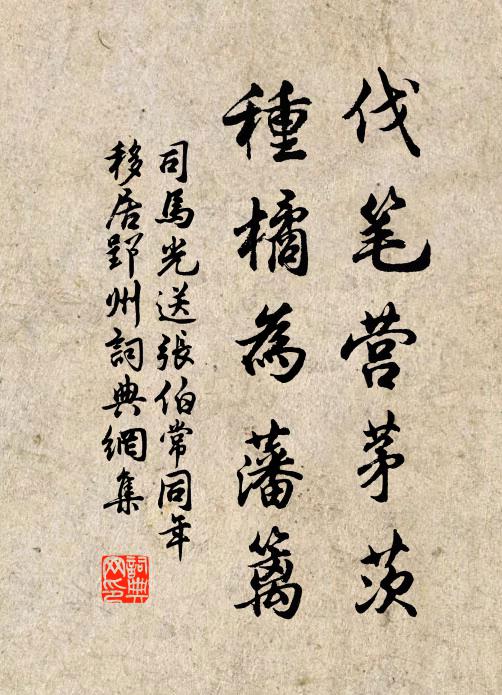 伐笔营茅茨
種橘為藩籬
司馬光送張伯常同年
移居郢州詞典網集
詞典網印